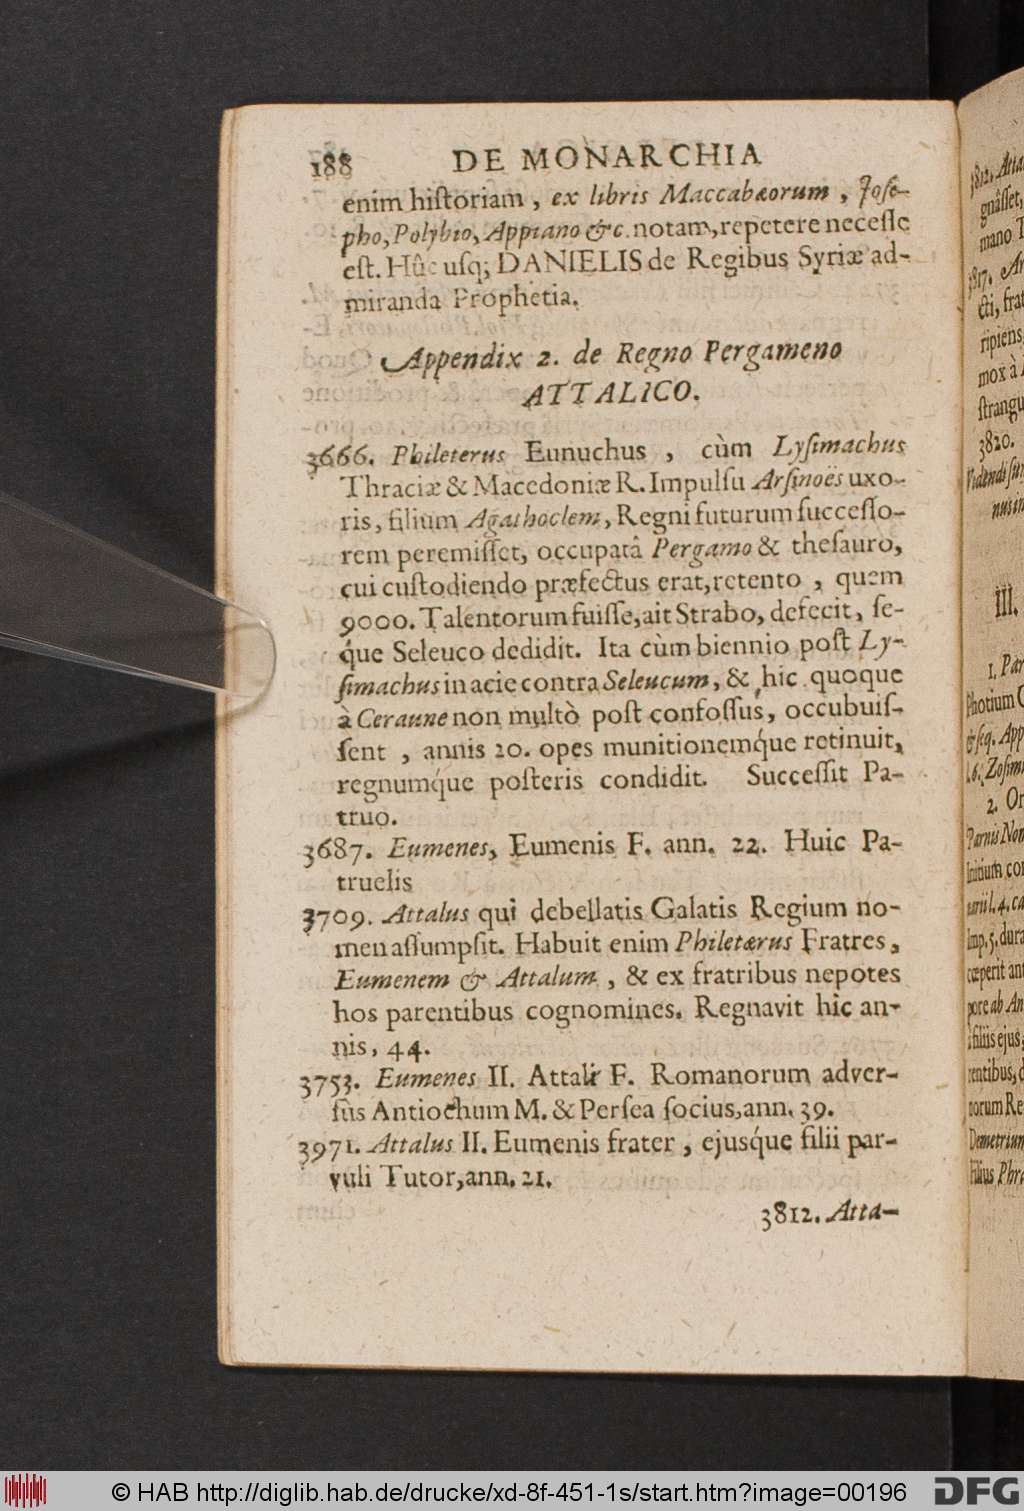 188 DE MONARCHIA
enim hiſtoriam, ex libris Maccabæorum, Joſe-
pho, Polybio, Appiano &c. notam, repetere neceſſe
eſt. Hûc uſq; DANIELIS de Regibus Syriæ ad-
miranda Prophetia.
Appendix 2. de Regno Pergameno
ATTALICO.
3666. Phileterus Eunuchus, cùm Lyſimachus
Thraciæ & Macedoniæ R. Impulſu Arſinoës uxo-
ris, filium Agathoclem, Regni futurum ſucceſſo-
rem peremiſſet, occupatâ Pergamo & theſauro,
cui cuſtodiendo præfectus erat, retento, quem
9000. Talentorum fuiſſe, ait Strabo, defecit, ſe-
q́ue Seleuco dedidit. Ita cùm biennio poſt Ly-
ſimachus in acie contra Seleucum, & hic quoque
à Ceraune non multò poſt confoſſus, occubuiſ-
ſent, annis 20. opes munitionemq́ue retinuit,
regnumq́ue poſteris condidit. Succeſſit Pa-
truo.
3687. Eumenes, Eumenis F. ann. 22. Huic Pa-
truelis
3709. Attalus qui debellatis Galatis Regium no-
men aſſumpſit. Habuit enim Philetærus Fratres,
Eumenem & Attalum, & ex fratribus nepotes
hos parentibus cognomines. Regnavit hîc an-
nis, 44.
3753. Eumenes II. Attali F. Romanorum adver-
ſùs Antiochum M. & Perſea ſocius, ann. 39.
3971. Attalus II. Eumenis frater, ejusq́ue filii par-
vuli Tutor, ann. 21.
3812. Atta-
3812. Atta
gnâſſet,
mano
3817. 
cti, frat
ripiens
mox à
ſtrangu
3820.
Videndi ſun
III.
1. Par
Photium
& ſeq. App
l. 6. Zoſim
2. Or
Parnis Non
Initium con
uarii l. 4. ca
Imp. 5. dura
cœperit ant
pore ab An
filiis ejus
rentibus, d
norum Re
Demetrium
Filius Phra
© HAB http://diglib.hab.de/drucke/xd-8f-451-1s/start.htm?image=00196
DFG